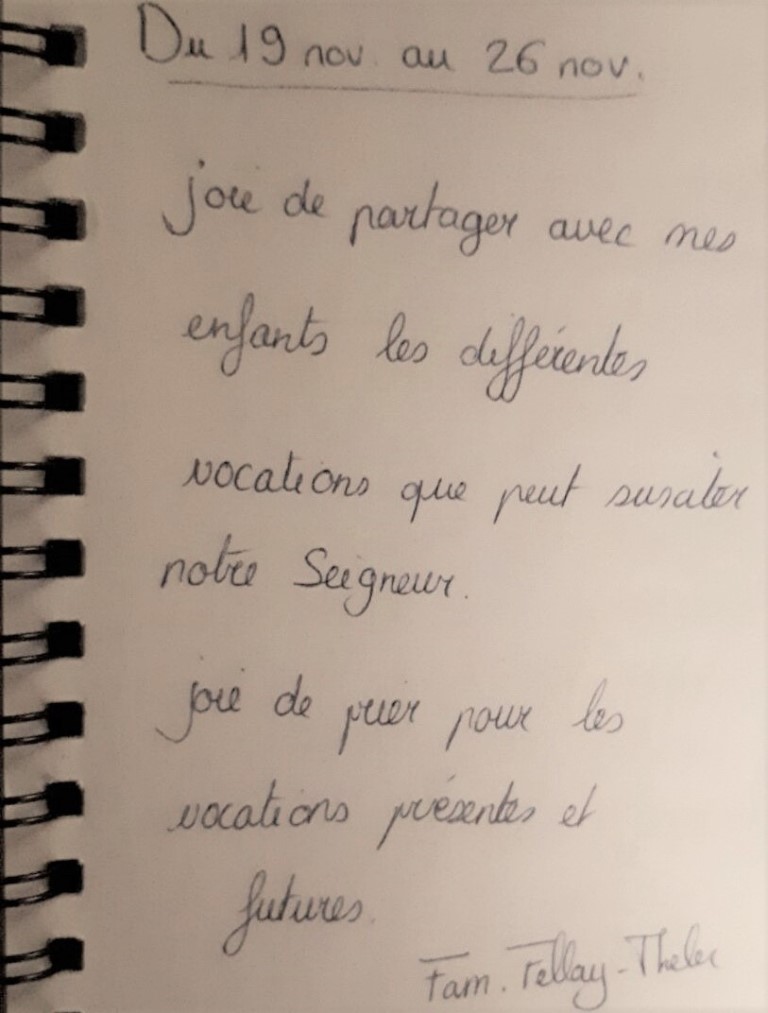 Du 19 nov. au 26 nov.
joie de partager avec mes
enfants les différentes
vocations que peut susciter
notre Seigneur.
joie de prier pour les
vocations présentes et
futures.
Fam. Fellay-Theler